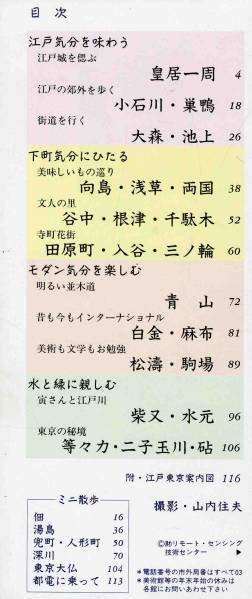 目次
江戸気分を味わう
江戸城を偲ぶ
皇居一周 4
江戸の郊外を歩く
小石川・巣鴨 18
街道を行く
大森・池上 26
下町気分にひたる
美味しいもの巡り
向島・浅草・両国 38
文人の里
谷中・根津・千駄木 52
寺町花街
田原町・入谷・三ノ輪 60
モダン気分を楽しむ
明るい並木道
青山 72
昔も今もインターナショナル
白金・麻布 81
美術も文学もお勉強
松濤・駒場 89
水と緑に親しむ
寅さんと江戸川
柴又・水元 96
東京の秘境
等々力・二子玉川・砧 106
附・江戸東京案内図 116
ミニ散歩
佃 16
湯島 36
兜町・人形町 50
深川 70
東京大仏 104
都電に乗って 113
撮影・山内住夫
©㈶リモート・センシング
技術センター ▶
＊電話番号の市外局番はすべて03
＊美術館等の年末年始の休みは
各館にお問いあわせ下さい